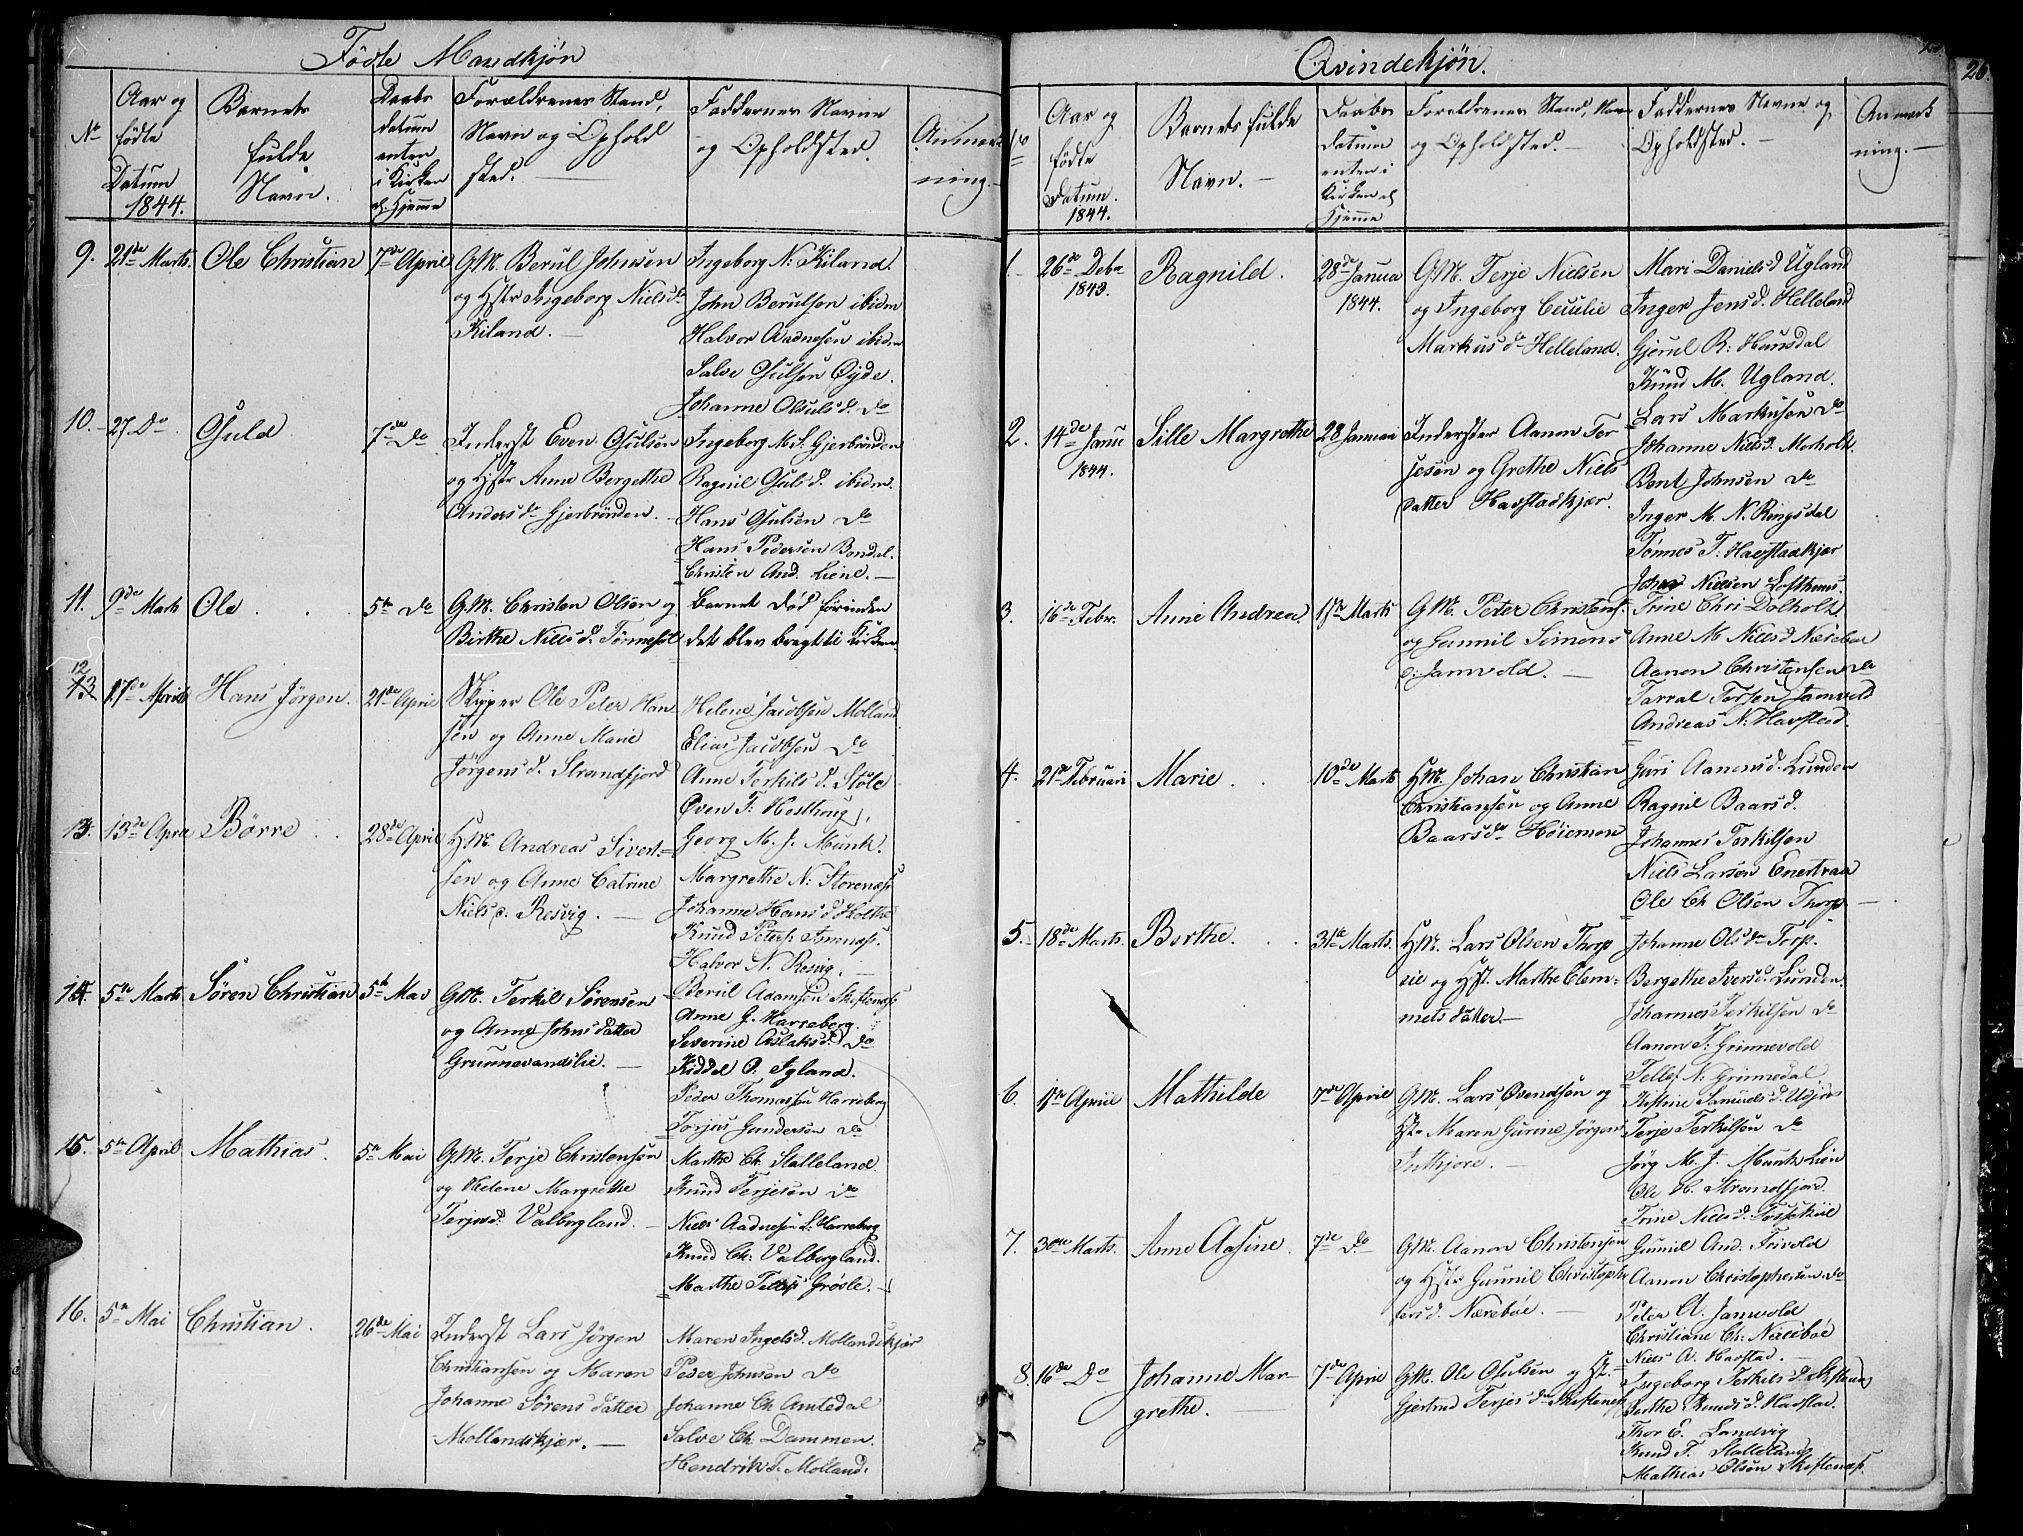 Födte Mandkjøn
No
Aar og
födte
Datum
1844.
Barnets
fulde
Navn.
Daabs
datum
enten
i Kirken
el. Hjemme
Forældrenes Stand,
Navn og Ophold
sted.
Faddernes Navne
og Opholdsted.
Anmærk
ning.
9. 21de Marts. Ole Christian 7de April
GM. Berul Johnsen
og Hstr Ingeborg Nielsdr
Kiland.
Ingeborg N: Kiland.
John Berulsen ibidm
Halvor Aadnesen ibidm
Salve Osulsen Øyde.
Johanne Olsulsd. do
10. 27 Do Osuld 7de Do
Inderst Even Osulsen
og Hstr Anne Bergethe
Andersdr Gjerbrönden.
Ingeborg M. S. Gjerbrönden
Ragnil Osulsd. ibidm.
Hans Osulsen do
Hans Pedersen Bondel.
Christen And. Liene.
11. 9de Marts Ole 5te Do
GM. Christen Olsen og
Birthe Nielsd. Tönnesöl
Barnet död förinden
det blev bragt til Kirken
12 13 17de April Hans Jörgen. 21de April
Skipper Ole Peter Han-
sen og Anne Marie
Jörgensd. Strandfjord
Helene Jacobsen Molland
Elias Jacobsen do
Anne Terkilsd. Støle
Even T: Hesthag,
Georg M. J. Munk.
13. 13de April Börre 28de April
HM. Andreas Sivert-
sen og Anne Catrine
Nielsd. Resvig.
Margrethe N: Storenæs
Johanne Hansd. Holthe
Knud Peters.
Halvor N. Resvig.
14. 5te Marts Sören Christian 5te Mai
GM. Terkil Sörensen
og Anne Johnsdatter
Grunnevandslie.
Berul Adamsen Skiftenæs
Anne G. Harreberg.
Severine Aslaksd. do
Kiddel O: Igland.
Peder Thomassen Harreberg
Torjus Gundersen do
15. 5te April Mathias. 5te Mai
GM. Terje Christensen
og Helene Margrethe
Terjesd. Valborgland.
Marthe Ch. Stalleland.
Knud Terjesen do
Niels Aadnesen L. Harreberg
Knud Ch: Valborgland.
Marthe Tellefs. Gröslе.
16. 5te Mai Christian. 26de Mai
Inderst Lars Jörgen
Christiansen og Maren
Johanne Sörensdatter
Mollandskjær.
Maren Ingelsd. Mollandskjær
Peder Johnsen do
Johanne Ch. Amtedal
Salve Ch. Dammen.
Hendrik T. Molland.
Qvindekjön.
26.
No
Aar og
födte
Datum.
1844.
Barnets fulde
Navn.
Daabs
datum
enten i
Kirken el
Hjemme
Forældrenes Stand, Navn
og Opholdsted.
Faddernes Navne og
Opholdsted.
Anmærk
ning.
1. 26de Debr 1843. Ragnild. 28de Janua 1844.
GM. Terje Nielsen
og Ingeborg Cecilie
Markusdr Helleland.
Mari Danielsd Ugland
Inger Jensd. Helleland
Gjerul R: Hunsdal
Knud M. Ugland.
Lars Markusen do
2. 14de Janu 1844. Sille Margrethe 28 Januari
Inderster Aanon Ter
jesen og Grethe Niels
datter Havstadkjær.
Johanne Nielsd. Morholt.
Bent Johnsen do
Inger M. N. Ringsdal
Tönnes T. Havstadkjær
Johan Nielsen Lofthuus.
3. 16de Febr. Anne Andrea 17de Marts
GM. Peter Christens.
og Gunnil Simons
d. Jamvold.
Trine Chri Dolholt
Anne M Nielsd Næreboe
Aanon Christensen do
Tarral Torsen Jamvold
Andreas N: Havsted.
4. 21de Februari Marie. 10de Marts
HM. Johan Christian
Christiansen og Anne
Baarsdr Höiemoen
Guri Aanonsd. Lunden
Ragnil Baarsd.
Johannes Terkilsen
Niels Larsen Enertraa
Ole Ch Olsen Thorp.
5. 18de Marts. Berthe. 31te Marts.
HM. Lars Olsen Thorp
eie og Hst. Marthe Clem-
metsdatter.
Johanne Olsdr Torp.
Bergethe Iversd. Lunden.
Johannes Terkilsen do
Aanon T. Grinnevold
Tellef N: Grimedal
6. 1ste April Mathilde 7de April
GM. Lars Evendsen og
Hstr Maren Gurine Jörgens
Intkjore.
Kistine Samuelsd. Usjøs
Terje Terkilsen do
Jörg M. J. Munk Lien
Ole H. Strandfjord.
Trine Nielsd. Fossekiil
7. 30te Marts. Anne Aasine. 7de Do
GM. Aanon Christensen
og Hstr Gunnil Christoph
fersd. Næreböe.
Gunnil And. Frivold
Aanon Christophersen do
Peter A. Jamvold
Christiane Ch. Næreböe
Niels A. Havstad.
8. 16de Do Johanne Mar-
grethe. 7de April
GM. Ole Osulsen og Hst.
Gjertrud Terjesdr Skiftenes
Ingeborg Terkilsd. Skiftenæs
Berthe Knudsd. Havstad.
Thor E. Landvig
Knud T. Stalleland
Mathias Olsen Skiftenæs.